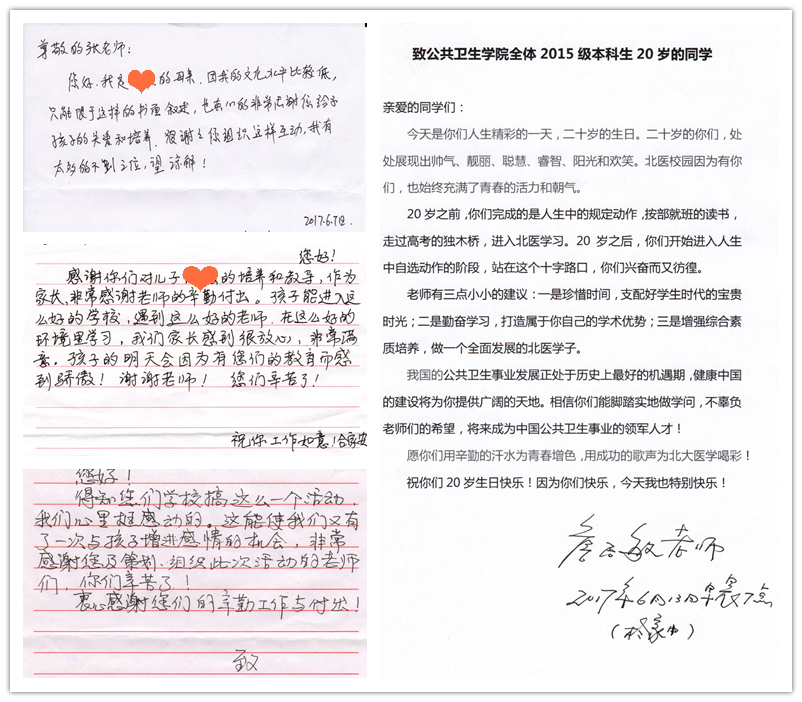 尊敬的张老师：
您好．我是
的母亲．因我的文化水平比较低，
只能限于这样的书面叙述，也衷心的非常感谢您给予
孩子的关爱和培养．很谢谢您组织这样互动，我有
太多的不到之位，望 谅解！
2017.6.7日
您好！
感谢你们对儿子
的培养和教导，作为
家长，非常感谢老师的辛勤付出。孩子能进入这
么好的学校，遇到这么好的老师．在这么好的
环境里学习，我们家长感到很放心，非常满
意．孩子的明天会因为有您们的教育而感
到骄傲！谢谢老师！ 您们辛苦了！
祝你工作如意！合家安
您好！
得知您们学校搞这么一个活动，
我们心里挺感动的。这能使我们又有
了一次与孩子增进感情的机会，非常
感谢您及策划．组织此次活动的老师
们，你们辛苦了！
衷心感谢您们的辛勤工作与付出！
致
致公共卫生学院全体 2015 级本科生 20 岁的同学
亲爱的同学们：
今天是你们人生精彩的一天，二十岁的生日。二十岁的你们，处
处展现出帅气、靓丽、聪慧、睿智、阳光和欢笑。北医校园因为有你
们，也始终充满了青春的活力和朝气。
20 岁之前，你们完成的是人生中的规定动作，按部就班的读书，
走过高考的独木桥，进入北医学习。20 岁之后，你们开始进入人生
中自选动作的阶段，站在这个十字路口，你们兴奋而又彷徨。
老师有三点小小的建议：一是珍惜时间，支配好学生时代的宝贵
时光；二是勤奋学习，打造属于你自己的学术优势；三是增强综合素
质培养，做一个全面发展的北医学子。
我国的公共卫生事业发展正处于历史上最好的机遇期，健康中国
的建设将为你提供广阔的天地。相信你们能脚踏实地做学问，不辜负
老师们的希望，将来成为中国公共卫生事业的领军人才！
愿你们用辛勤的汗水为青春增色，用成功的歌声为北大医学喝彩！
祝你们 20 岁生日快乐！因为你们快乐，今天我也特别快乐！
老师
2017年6月13日早晨7点